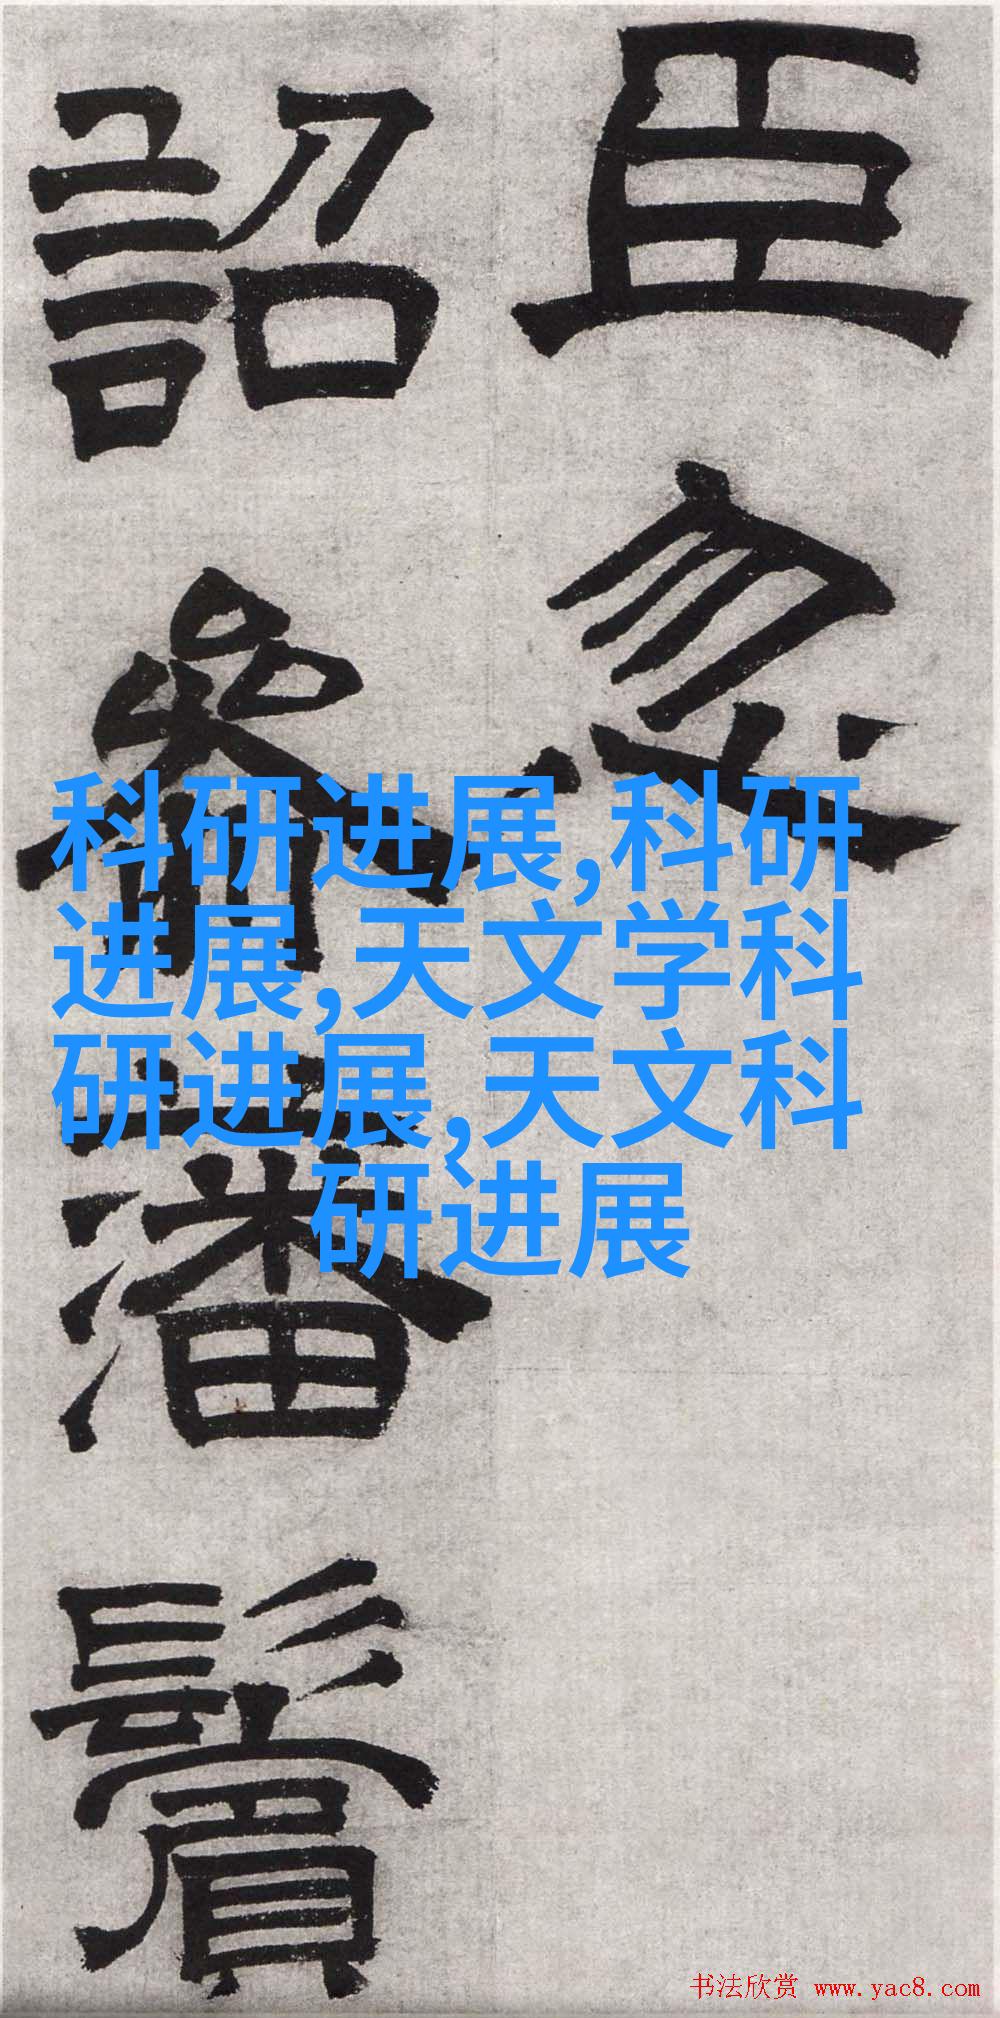 臣忽
詔參潘鬢
科研进展,科研
进展,天文学科
研进展,天文科
研进展
书法欣赏 www.yac8.com